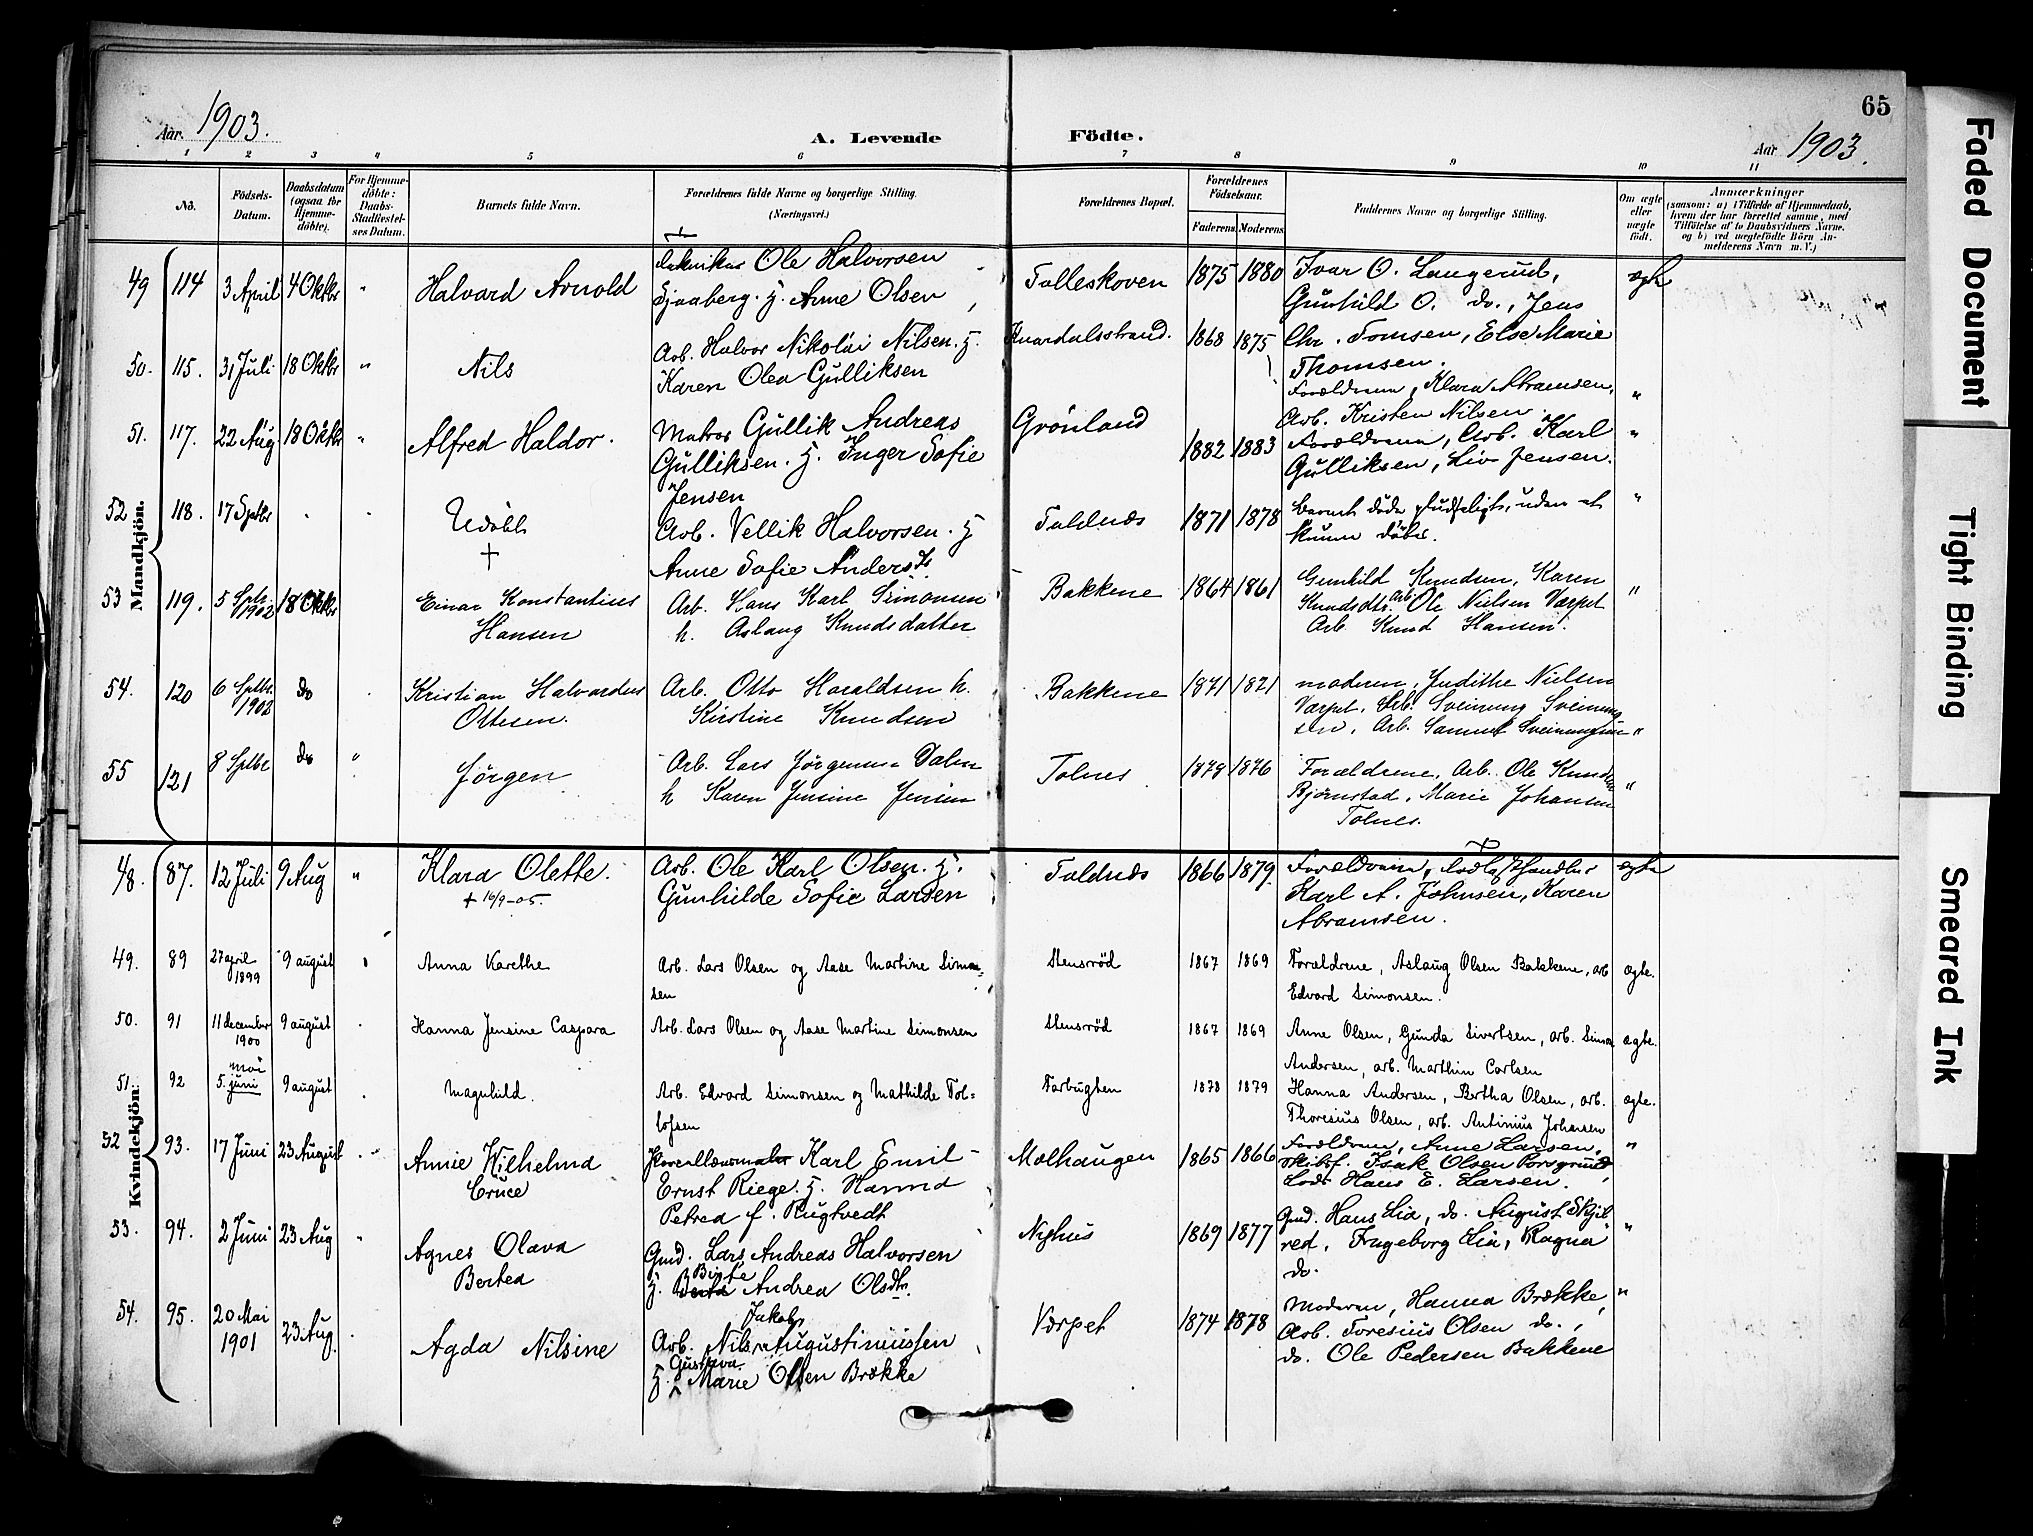 65
Aar. 1903.
A. Levende Födte.
Aar 1903.
1 2 3 4 5 6 7 8 9 10 11
No.
Födsels-Datum.
Daabsdatum (ogsaa for Hjemme-döbte).
For Hjemme-döbte: Daabs-Stadfæstel-ses Datum.
Barnets fulde Navn.
Forældrenes fulde Navne og borgerlige Stilling. (Næringsvei.)
Forældrenes Bopæl.
Forældrenes Födselsaar.
Faderens Moderens
Faddernes Navne og borgerlige Stilling.
Om ægte eller uægte födt.
Anmærkninger
(saasom: a) i Tilfælde af Hjemmedaab,
hvem der har forrettet samme, med
Tilföielse af to Daabsvidners Navne.
og b) ved uægtefödte Börn An-
melderens Navn m. V.)
Mandkjön.
49 114 3 April 4 Oktbr " Halvard Arnold Tekniker Ole Halvorsen Talleskoven 1875 1880 Ivar O. Langerud, ægte
Sjaaberg. H. Anne Olsen Gunhild O. do., Jens
50. 115. 31 Juli 18 Oktbr " Nils Arb. Halvor Nikolai Nilsen. H. Knardalsstrand. 1868 1875 Chr. Tomsen, Else Marie
Karen Olea Gulliksen Thomsen.
Forældrene, Klara Abramsen, "
Arb. Kristen Nilsen
51. 117. 22 Aug 18 Oktbr " Alfred Haldor. Matros Gullik Andreas Grönland 1882 1883 Forældrene, Arb. Karl "
Gulliksen. H. Inger Sofie Gulliksen, Liv Jensen.
Jensen
52 118. 17 Sptbr . . Udöbt Arb. Vellik Halvorsen. H Toldnæs 1871 1878 Barnet döde pludseligt, uden at "
† Anne Sofie Andersdt. kunne döbes.
53 119. 5 Sptb. 1902 18 Oktbr Einar Konstantius Arb. Hans Karl Simonsen Bakkene 1864 1861 Gunhild Knudsen, Karen "
Hansen h. Aslaug Knudsdatter Knudsdtr. arb. Ole Nielsen Værpet
Arb. Knud Hansen.
54. 120 6 Sptbr. 1902 do . Kristian Halvardus Arb. Otto Haraldsen h. Bakkene 1871 1871 moderen, Judithe Nielsen
Ottesen. Kirstine Knudsen Værpet, Arb. Sveinung Sveinung
sen, Arb. Samuel Sveinungsen "
55 121 8 Sptbr do " Jörgen Arb. Lars Jörgensen Dalen Tolnes 1879 1876 Forældrene, Arb. Ole Knudsen
h Karen Jensine Jensen Bjørnstad, Marie Johansen "
Tolnes.
Kvindekjön.
48. 87. 12 Juli 9 Aug " Klara Olette. Arb. Ole Karl Olsen. H. Toldnæs 1866 1879. Forældrene, Handler ægte
+ 16/9-05. Gunhilde Sofie Larsen Karl A. Johnsen, Karen
Abramsen.
49. 89 27 april 1899 9 august " Anna Karethe Arb. Lars Olsen og Aase Martine Simon- Stensrød 1867 1869 Forældrene, Aslaug Olsen Bakkene, arb ægte.
sen Edvard Simonsen.
50. 91 11 december 1900 9 august . Hanna Jensine Caspara Arb. Lars Olsen og Aase Martine Simonsen Stensrød 1867 1869 Anne Olsen, Gunda Sivertsen, arb. Simon ægte.
Andersen, arb. Marthin Carlsen
51. 92 mai 5. juni 9 august . Magnhild. Arb. Edvard Simonsen og Mathilde Tol- Farbugten 1878 1879 Hanna Andersen, Bertha Olsen, arb. ægte.
lofsen Thoresius Olsen, arb. Antinius Johansen
52 93. 17 Juni 23 August " Annie Wilhelmd Karl Emil Molhaugen 1865 1866 Forældrene, Anne Larsen, "
Cruce Ernst Riege. H. Hanna Skibsf. Isak Olsen Porsgrund,
Petrea f. Rugtvedt Lods Hans E. Larsen.
53. 94. 2 Juni 23 Aug " Agnes Olava Gmd. Lars Andreas Halvorsen Nyhus 1869 1877 Gmd. Hans Lia, do. August Skjel "
Bertea H. Berta Birte Andrea Olsdtr. red, Ingeborg Lia, Ragna
do.
54. 95. 20 Mai 1901 23 Aug . Agda Nilsine Arb. Nils Jakobs Augustinussen Værpet 1874 1878 Moderen, Hanna Brække, "
H. Gustava Marie Olsen Brække Arb. Toresius Olsen do.,
do. Ole Pedersen Bakkene
Faded Document
Tight Binding
Smeared Ink